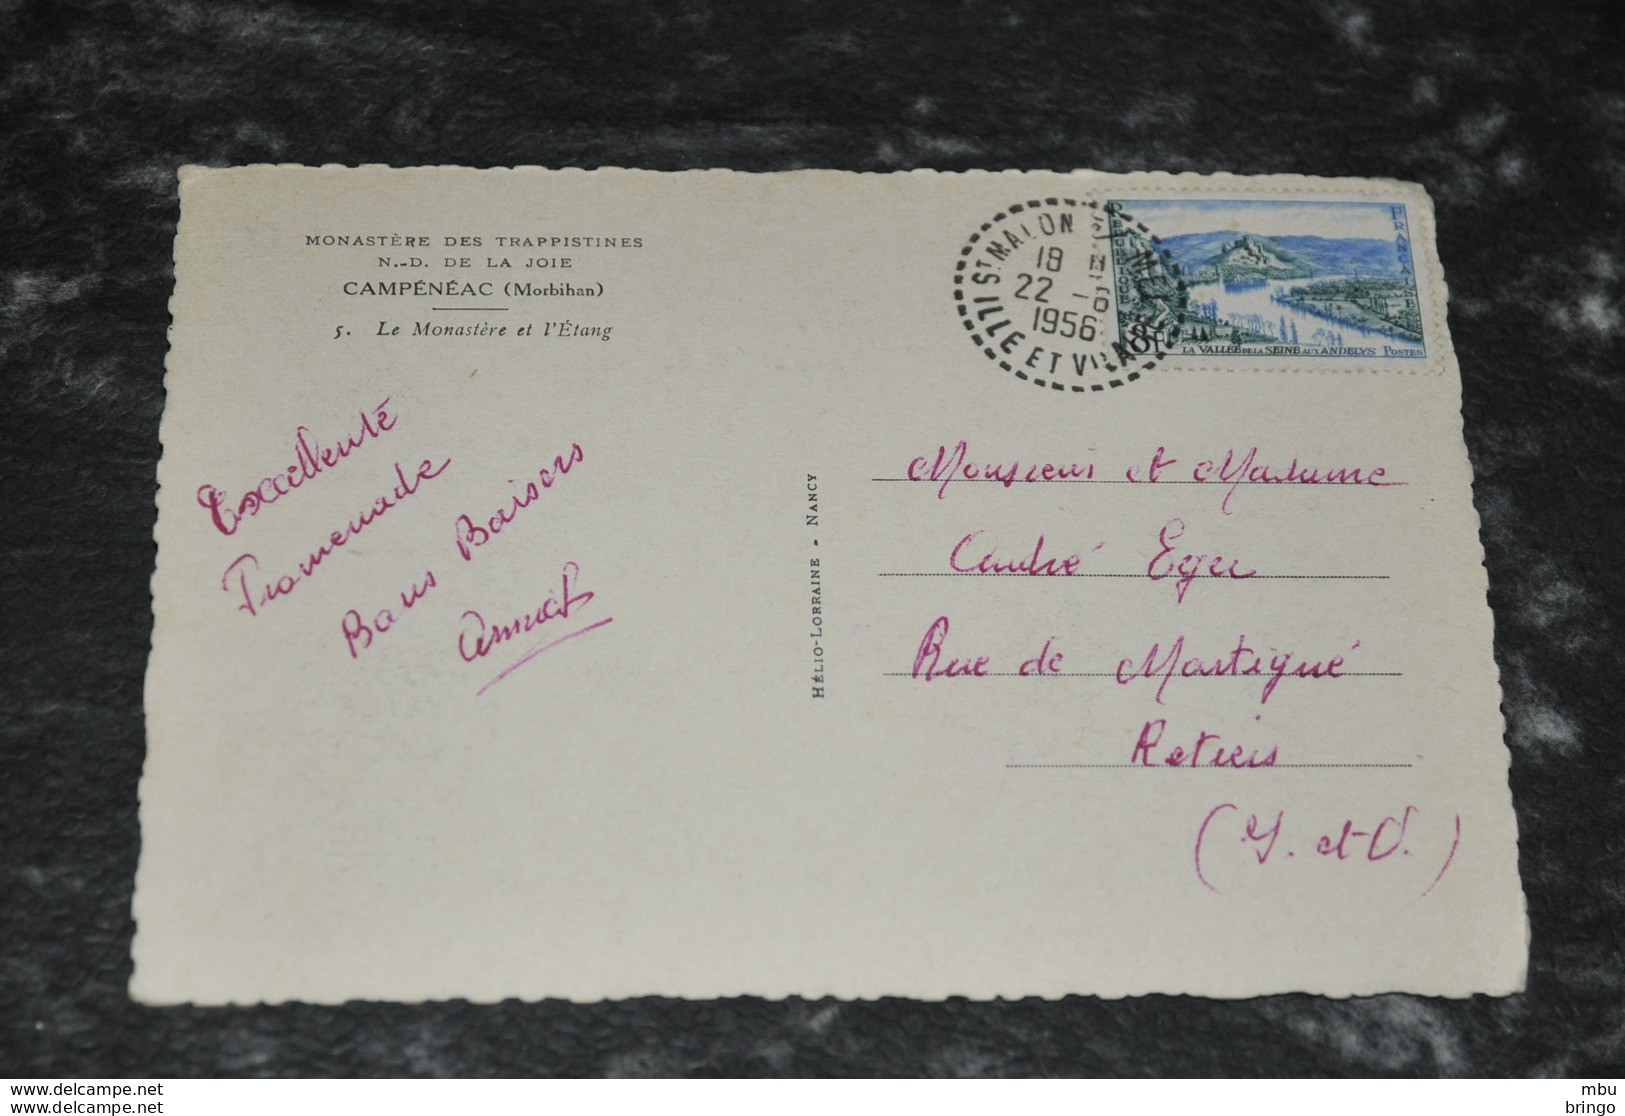 MONASTÈRE DES TRAPPISTINES
N.-D. DE LA JOIE
CAMPÉNÉAC (Morbihan)
5. Le Monastère et l'Étang
Excellente
Promenade
Bons Baisers
HÉLIO-LORRAINE - NANCY
ST MALON
18
22 -6
1956
ILLE ET VILAINE
RÉPUBLIQUE FRANÇAISE
8F
LA VALLÉE DE LA SEINE AUX ANDELYS POSTES
Monsieur et Madame
André
Rue de Martigné
Retiers
(I. et V.)
www.delcampe.net
www.delcampe.net
mbu
bringo